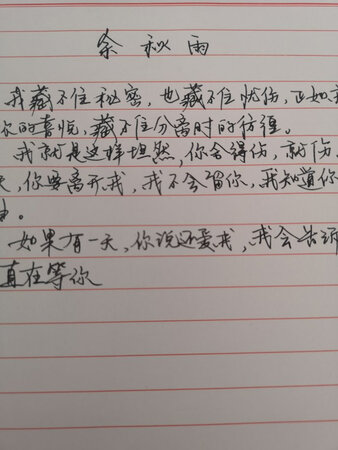 余秋雨
我藏不住秘密，也藏不住忧伤，正如
你的喜悦，藏不住分离时的彷徨。
我就是这样坦然，你舍得伤，就伤。
天，你要离开我，我不会留你，我知道你
由。
如果有一天，你说还爱我，我会告诉
直在等你